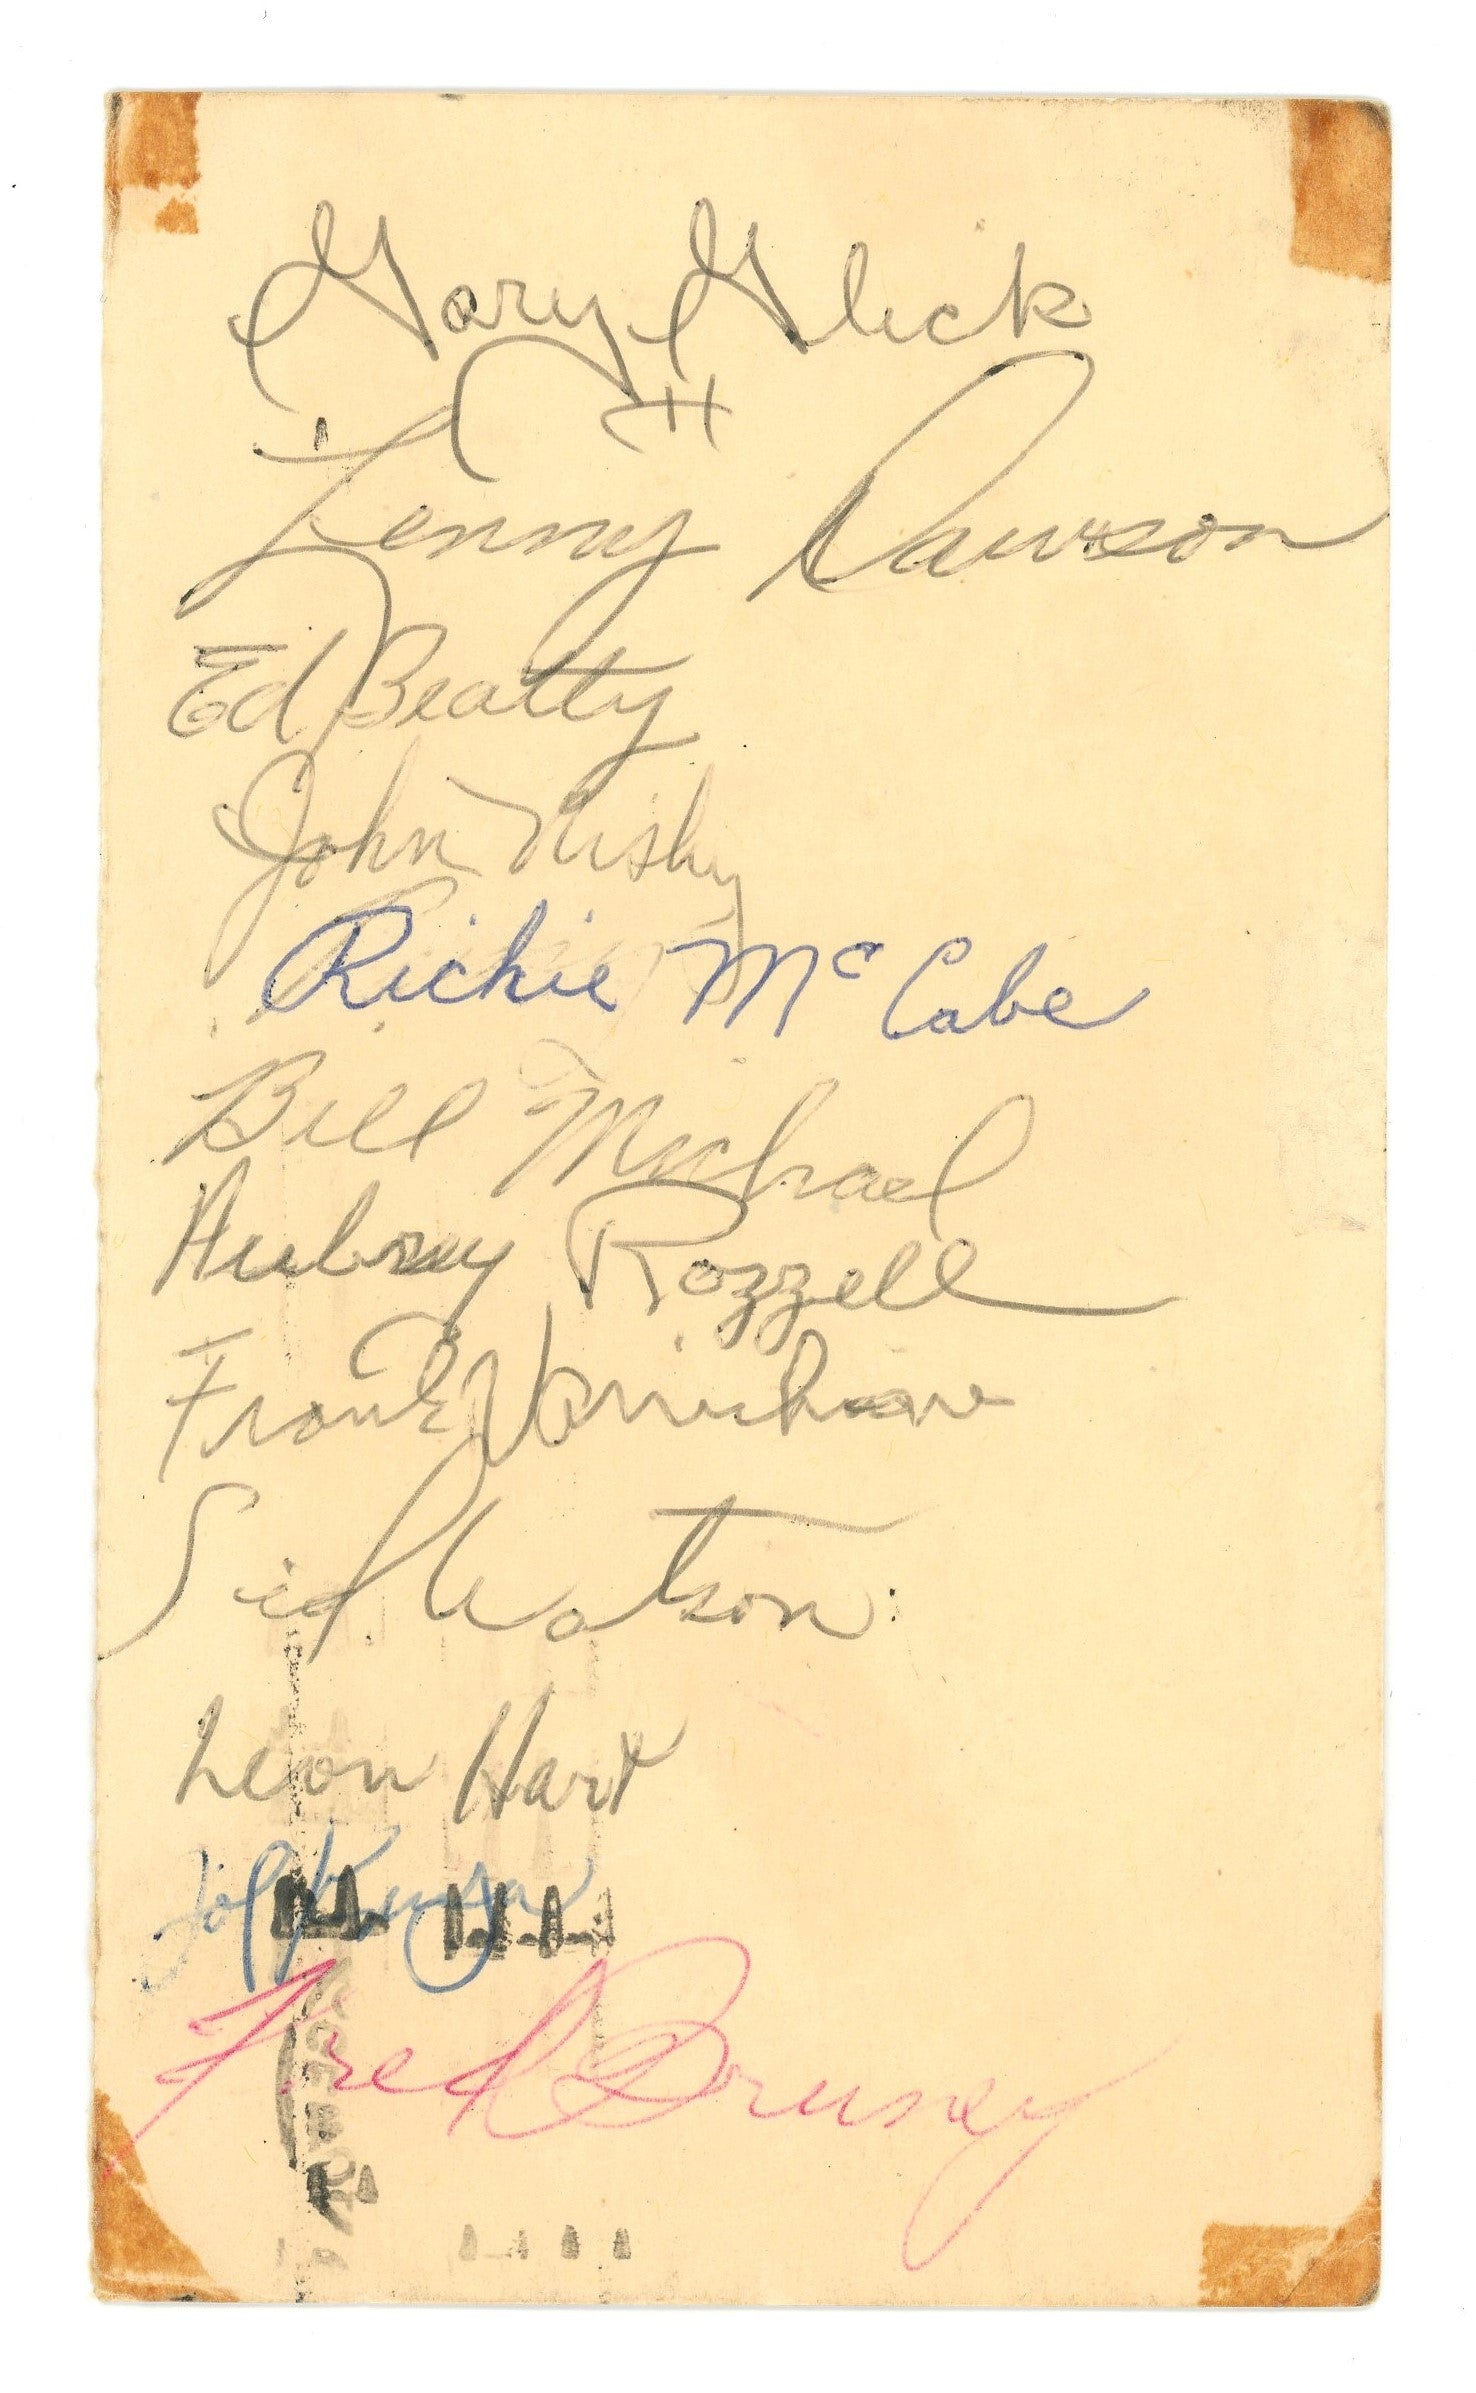 Gary Glick
Lenny Dawson
Ed Beatty
John Nisby
Richie McCabe
Bill Michael
Aubrey Rozzell
Frank Varrichione
Sid Watson
Leon Hart
Joe Krupa
Fred Bruney